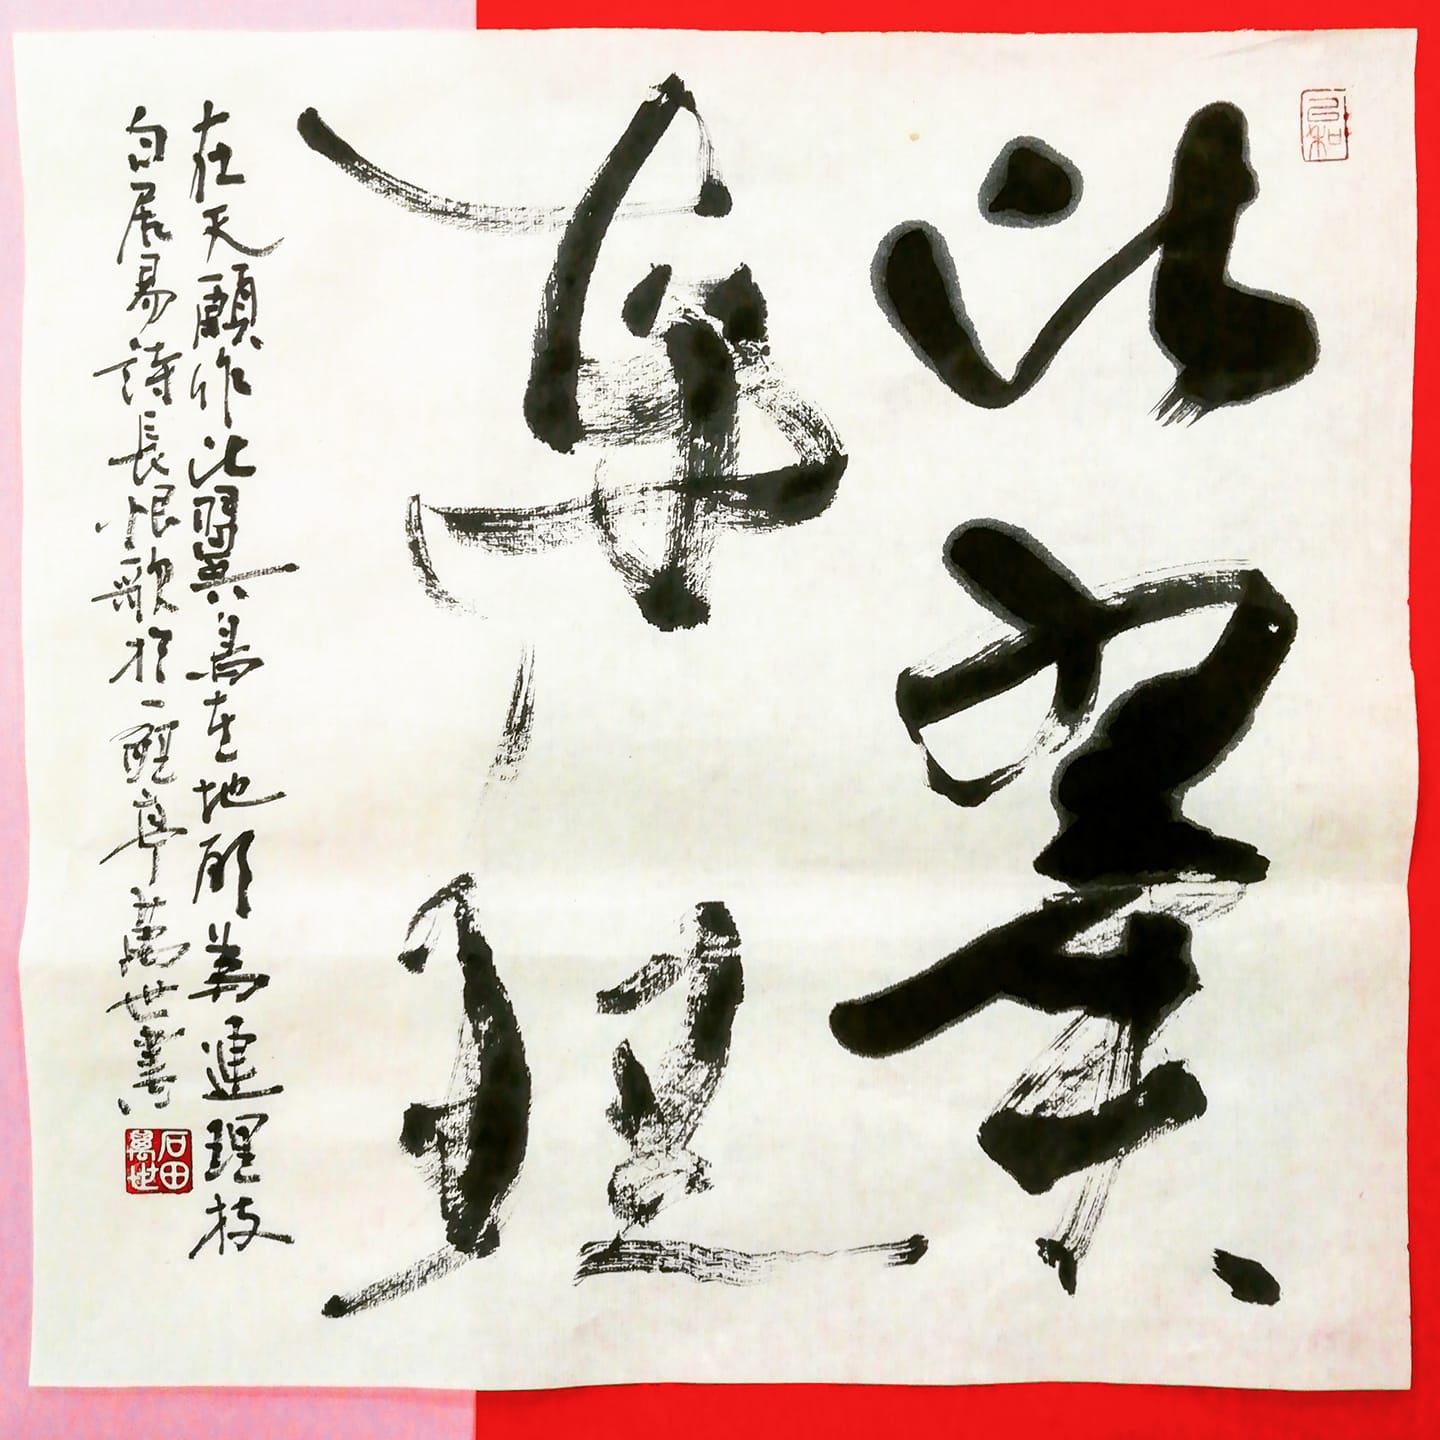 比翼
連理
在天願作比翼鳥在地願為連理枝
白居易詩長恨歌於一醒亭萬世書
石田
萬世